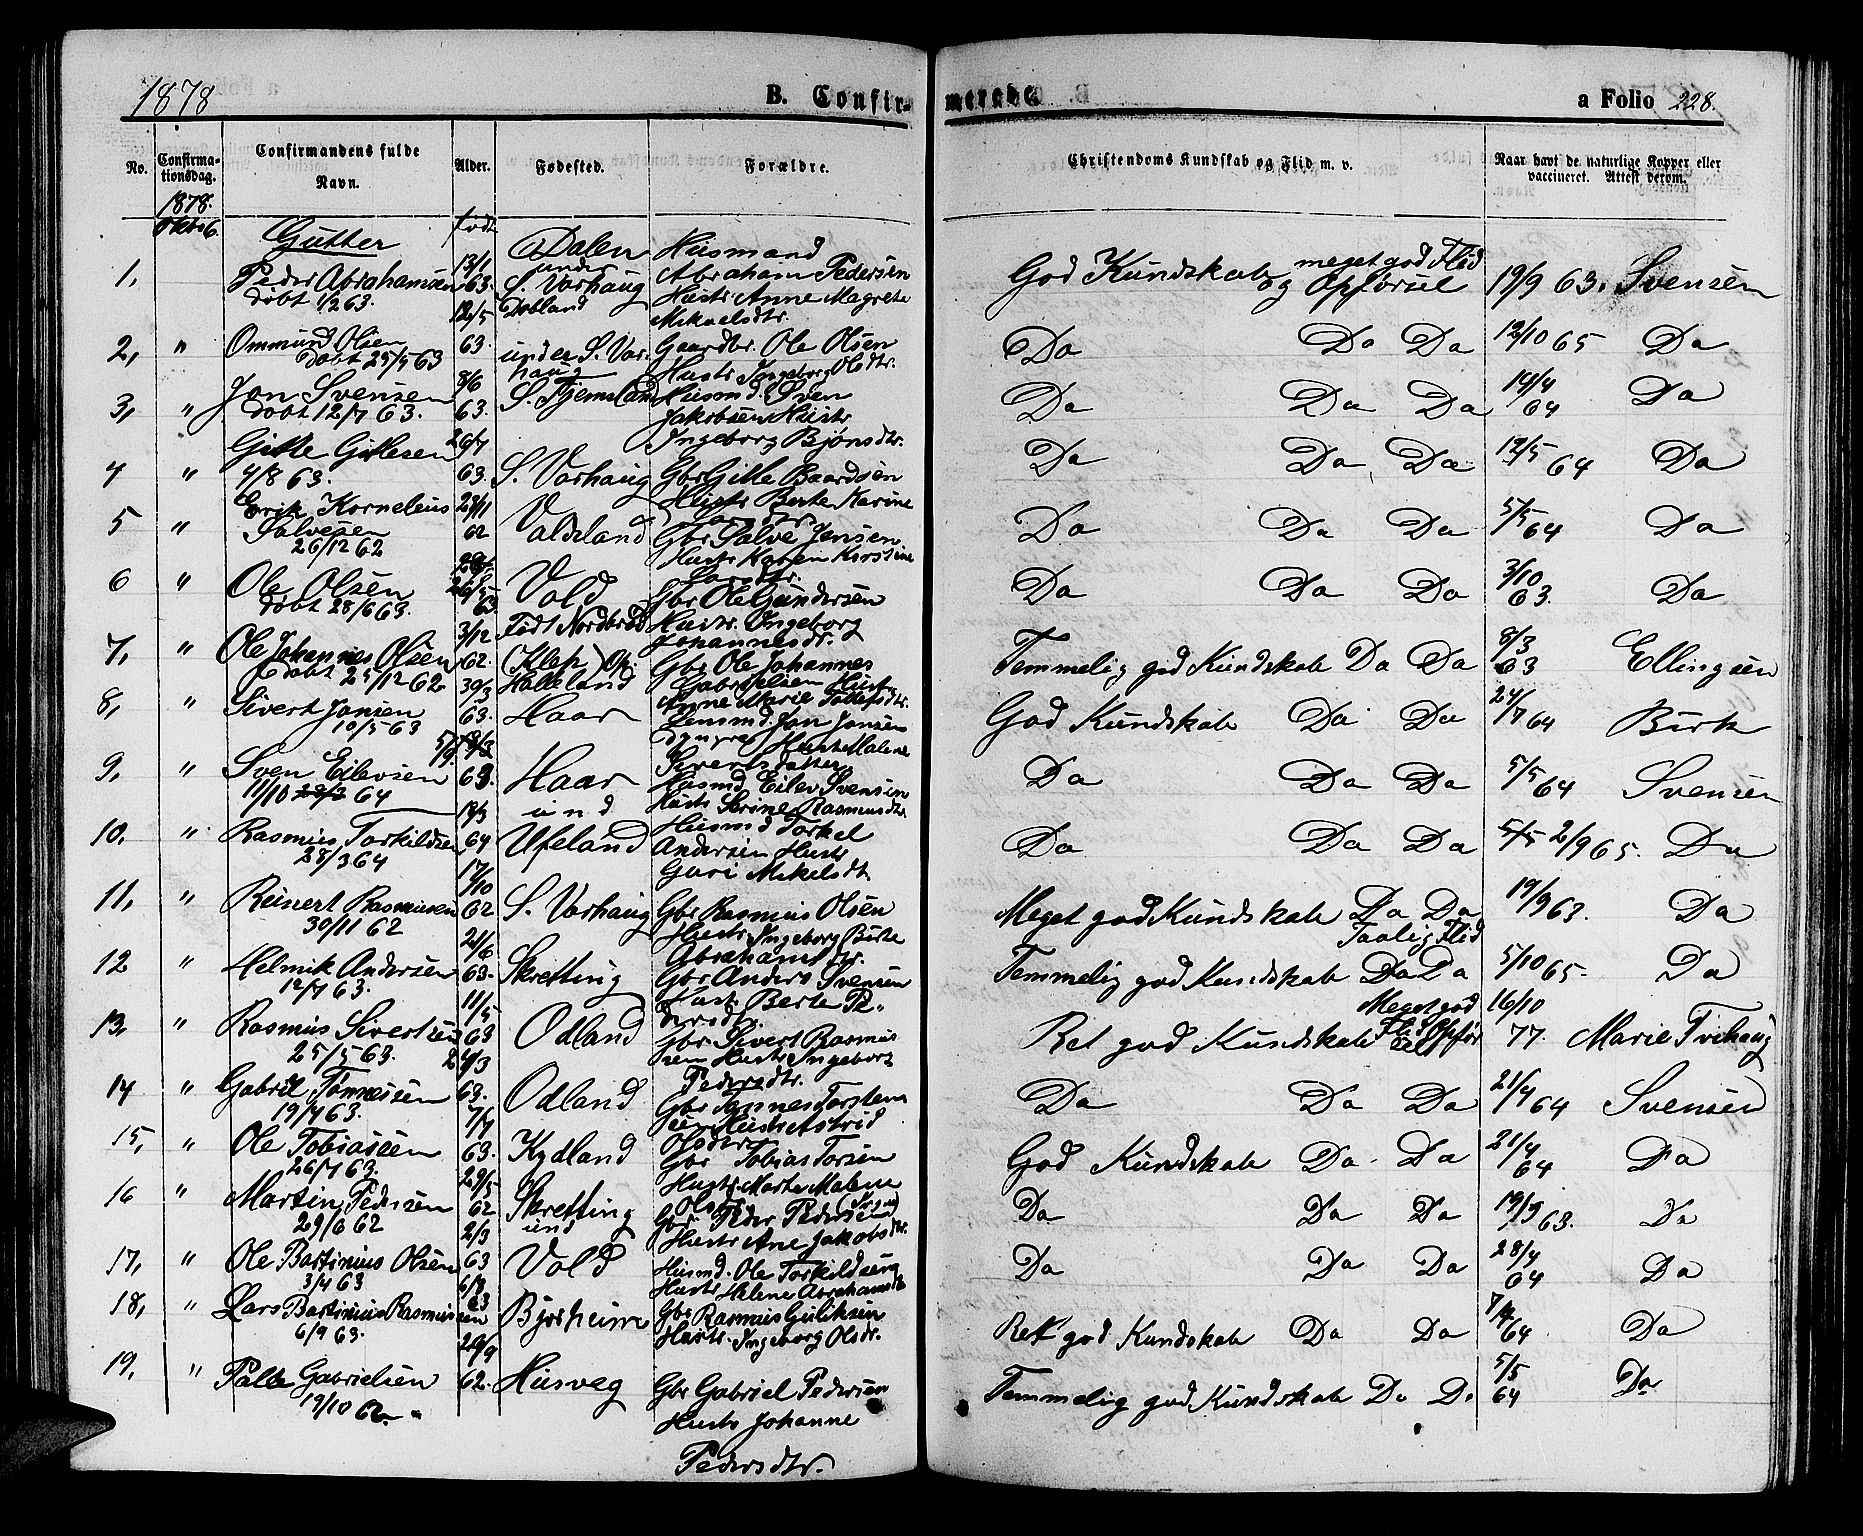 1878 B. Confirmerede. a Folio 228.
No. Confirmationsdag. Confirmandens fulde Navn. Alder. Fødested. Forældre. Christendoms Kundskab og Flid m. v. Naar havt de naturlige Kopper eller vaccineret. Attest derom.
1878. Oktr 6. Gutter født
1, Peder Abrahamsen døbt 1/2 63. 13/1 63. Dalen under S. Varhaug Husmand Abraham Pedersen Hustr Anne Magrete Mikaelsdtr. God Kundskab meget god Flid og Opførsel 19/9 63. Svensen
2, " Ommund Olsen døbt 25/5 63 12/5 63. Døbland under S. Varhaug Gaardbr. Ole Olsen Hustr Ingeborg Olsdtr. Do Do Do 12/10 65 Do
3, " Jon Svensen døbt 12/7 63. 8/6 63. S. Fjemsland Husmd. Sven Jakobsen Hustr Ingeborg Bjørnsdtr. Do Do Do 14/4 64 Do
4 " Gitle Gitlesen 4/8 63. 26/7 63. S. Varhaug Gbr Gitle Baardsen Hustr Berte Karine Do Do Do 12/5 64 Do
5 " Erik Kornelius Salvesen 26/12 62 23/11 62 Valdeland Gbr Salve Jensen Hustr Karen Kirstine Larsdtr. Do Do Do 5/5 64 Do
6 " Ole Olsen døbt 28/6 63. 26/5 63 Vold Gbr Ole Gundersen Hustr. Ingeborg Johannesdtr. Do Do Do 3/10 63. Do
7, " Ole Johannes Olsen døbt 25/12 62 3/12 62. Født Nordbrød (Klep) Op: Halleland Gbr Ole Johannes Gabrielsen Hust Anne Marie Tollefsdtr. Temmelig god Kundskab Do Do 8/3 63 Ellingsen
8, " Sivert Jansen 10/5 63 30/3 63. Haar Lensmd. Jan Jansen Hustr Malene Sivertsdatter God Kundskab Do Do 24/7 64 Birk
9, " Sven Eilevsen 11/10 64 63 Haar Husmd Eilev Svensen Hustr Serine Rasmusdtr. Do Do Do 5/5 64 Svensen
10. " Rasmus Torkildsen 28/3 64 13/3 64 und Ufseland Husmd Torkel Andersen Hustr Guri Mikelsdt Do Do Do 5/5 2/9 65. Do
11, " Reinert Rasmussen 30/11 62 17/10 62 S. Varhaug Gbr Rasmus Olsen Hustr Ingeborg Birte Abrahamsdtr. Meget god Kundskab Do Do 19/9 63. Do
12 " Helmik Andersen 12/7 63. 21/6 63. Skretting Gbr Anders Svensen Hustr Berte Pedersdtr. Temmelig god Kundskab Taalig Flid Do Do 5/10 65. Do
13 " Rasmus Sivertsen 25/5 63. 11/5 63 Odland Gbr Sivert Rasmussen Hustr Ingeborg Pedersdtr. Ret god Kundskab Meget god Flid Opførsel 16/10 77. Marie Tvihaug
14 " Gabriel Tønnesen 19/4 63. 24/3 63. Odland Gbr Tønnes Torstensen Hustr Astrid Olsdtr Do Do Do 21/4 64 Svensen
15, " Ole Tobiassen 26/7 63. 7/7 63. Kydland Gbr Tobias Torsen Hustr. Marta Malene God Kundskab Do Do 21/4 64 Do
16 " Martin Pedersen 29/6 62 29/5 62 Skretting Gbr Peder Pedersen Hustr Ane Jakobsdtr. Do Do Do 19/9 63. Do
17, " Ole Bartinius Olsen 3/4 63 2/3 63 und Vold Husmd. Ole Torkildsen Hustr Helene Abrahamsdtr Do Do Do 28/4 64 Do
18, " Lars Bartinius Rasmussen 6/9 63. 6/8 63 Bjorheim Gbr Rasmus Guliksen Hustr. Ingeborg Olsdr. Ret god Kundskab Do Do 7/4 64 Do
19, " Palle Gabrielsen 19/10 62. 20/9 62. Husveg Gbr Gabriel Pedersen Hustr Johanne Pedersdtr. Temmelig god Kundskab Do Do 5/5 64 Do